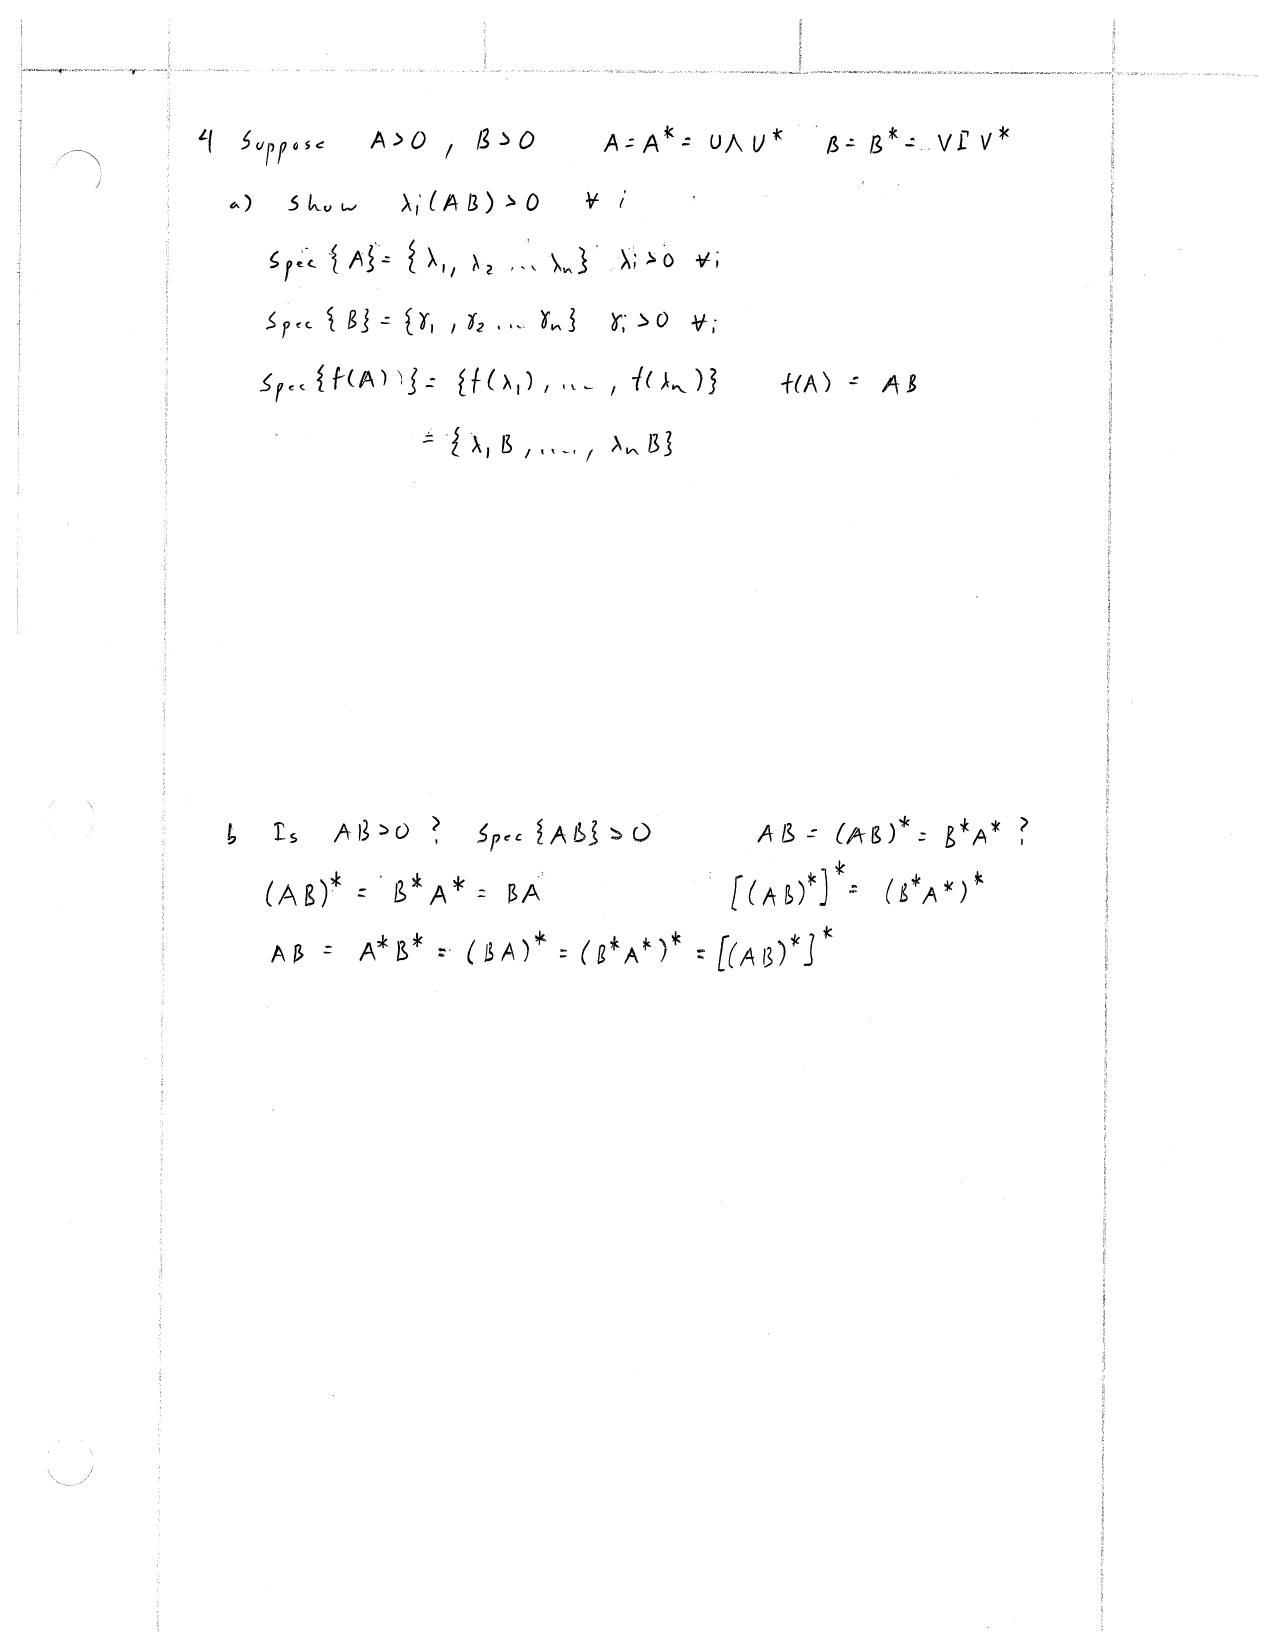 4 Suppose A>0, B>0 A=A*=UΛU* B=B*=VΓV*
a) Show λi(AB)>0 ∀ i
Spec{A}={λ1, λ2 ... λn} λi>0 ∀i
Spec{B}={γ1, γ2 ... γn} γi>0 ∀i
Spec{f(A)}={f(λ1), ..., f(λn)} f(A) = AB
= {λ1B, ...., λnB}
b Is AB>0? Spec{AB}>0 AB=(AB)*=B*A*?
(AB)* = B*A* = BA [(AB)*]*= (B*A*)*
AB = A*B* = (BA)* = (B*A*)* = [(AB)*]*